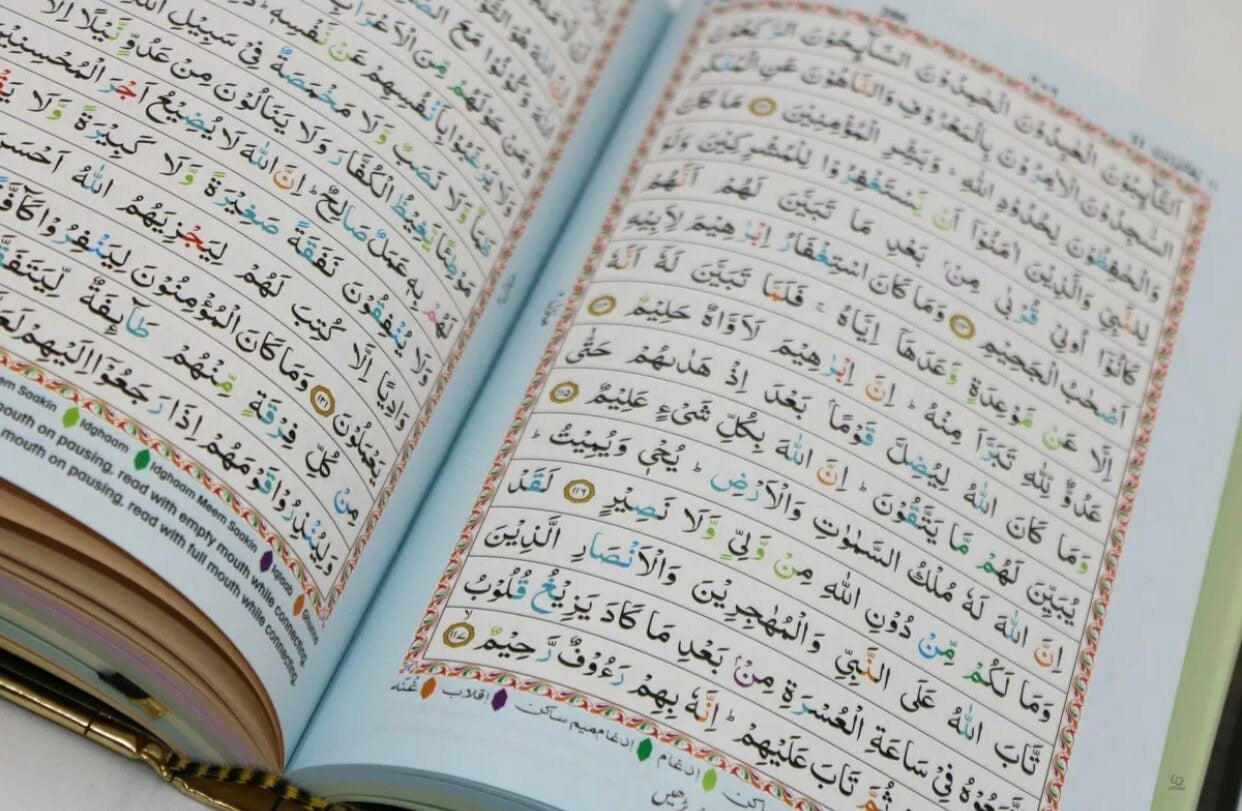 اَلتَّآئِبُوْنَ الْعٰبِدُوْنَ الْحٰمِدُوْنَ السَّآئِحُوْنَ الرّٰكِعُوْنَ
السّٰجِدُوْنَ الْاٰمِرُوْنَ بِالْمَعْرُوْفِ وَالنَّاهُوْنَ عَنِ الْمُنْكَرِ
وَالْحٰفِظُوْنَ لِحُدُوْدِ اللّٰهِ ؕ وَبَشِّرِ الْمُؤْمِنِيْنَ ﴿۱۱۲﴾ مَا كَانَ
لِلنَّبِيِّ وَالَّذِيْنَ اٰمَنُوْۤا اَنْ يَّسْتَغْفِرُوْا لِلْمُشْرِكِيْنَ وَلَوْ
كَانُوْۤا اُولِيْ قُرْبٰى مِنْۢ بَعْدِ مَا تَبَيَّنَ لَهُمْ اَنَّهُمْ
اَصْحٰبُ الْجَحِيْمِ ﴿۱۱۳﴾ وَمَا كَانَ اسْتِغْفَارُ اِبْرٰهِيْمَ لِاَبِيْهِ
اِلَّا عَنْ مَّوْعِدَةٍ وَّعَدَهَاۤ اِيَّاهُ ۚ فَلَمَّا تَبَيَّنَ لَهٗۤ اَنَّهٗ
عَدُوٌّ لِّلّٰهِ تَبَرَّاَ مِنْهُ ؕ اِنَّ اِبْرٰهِيْمَ لَاَوَّاهٌ حَلِيْمٌ ﴿۱۱۴﴾
وَمَا كَانَ اللّٰهُ لِيُضِلَّ قَوْمًۢا بَعْدَ اِذْ هَدٰىهُمْ حَتّٰى
يُبَيِّنَ لَهُمْ مَّا يَتَّقُوْنَ ؕ اِنَّ اللّٰهَ بِكُلِّ شَيْءٍ عَلِيْمٌ ﴿۱۱۵﴾
اِنَّ اللّٰهَ لَهٗ مُلْكُ السَّمٰوٰتِ وَالْاَرْضِ ؕ يُحْيٖ وَيُمِيْتُ ؕ
وَمَا لَكُمْ مِّنْ دُوْنِ اللّٰهِ مِنْ وَّلِيٍّ وَّلَا نَصِيْرٍ ﴿۱۱۶﴾ لَقَدْ
تَّابَ اللّٰهُ عَلَى النَّبِيِّ وَالْمُهٰجِرِيْنَ وَالْاَنْصَارِ الَّذِيْنَ
اتَّبَعُوْهُ فِيْ سَاعَةِ الْعُسْرَةِ مِنْۢ بَعْدِ مَا كَادَ يَزِيْغُ قُلُوْبُ
ثُمَّ تَابَ عَلَيْهِمْ ؕ اِنَّهٗ بِهِمْ رَءُوْفٌ رَّحِيْمٌ ﴿۱۱۷﴾
ادغام ادغام میم ساکن اقلاب غُنّه
وَكُوْنُوْا مَعَ
وَمَنْ حَوْلَهُمْ مِّنَ الْاَعْرَابِ
وَلَا يَرْغَبُوْا بِاَنْفُسِهِمْ عَنْ نَّفْسِهٖ ؕ
وَّلَا نَصَبٌ وَّلَا مَخْمَصَةٌ فِيْ سَبِيْلِ اللّٰهِ
مَوْطِئًا يَّغِيْظُ الْكُفَّارَ وَلَا يَنَالُوْنَ مِنْ عَدُوٍّ نَّيْلًا اِلَّا
لَهُمْ بِهٖ عَمَلٌ صَالِحٌ ؕ اِنَّ اللّٰهَ لَا يُضِيْعُ اَجْرَ الْمُحْسِنِيْنَ
وَلَا يُنْفِقُوْنَ نَفَقَةً صَغِيْرَةً وَّلَا كَبِيْرَةً وَّلَا
وَادِيًا اِلَّا كُتِبَ لَهُمْ لِيَجْزِيَهُمُ اللّٰهُ اَحْسَنَ
يَعْمَلُوْنَ ﴿۱۲۱﴾ وَمَا كَانَ الْمُؤْمِنُوْنَ لِيَنْفِرُوْا كَآفَّةً
مِنْ كُلِّ فِرْقَةٍ مِّنْهُمْ طَآئِفَةٌ
وَلِيُنْذِرُوْا قَوْمَهُمْ اِذَا رَجَعُوْۤا اِلَيْهِمْ
Saakin Idghaam Idghaam Meem Saakin Iqlaab Ghunna
mouth on pausing, read with empty mouth while connecting.
mouth on pausing, read with full mouth while connecting.